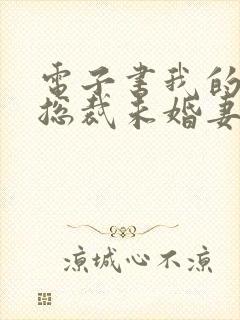 電子書我的
总裁未婚妻
凉城心不凉